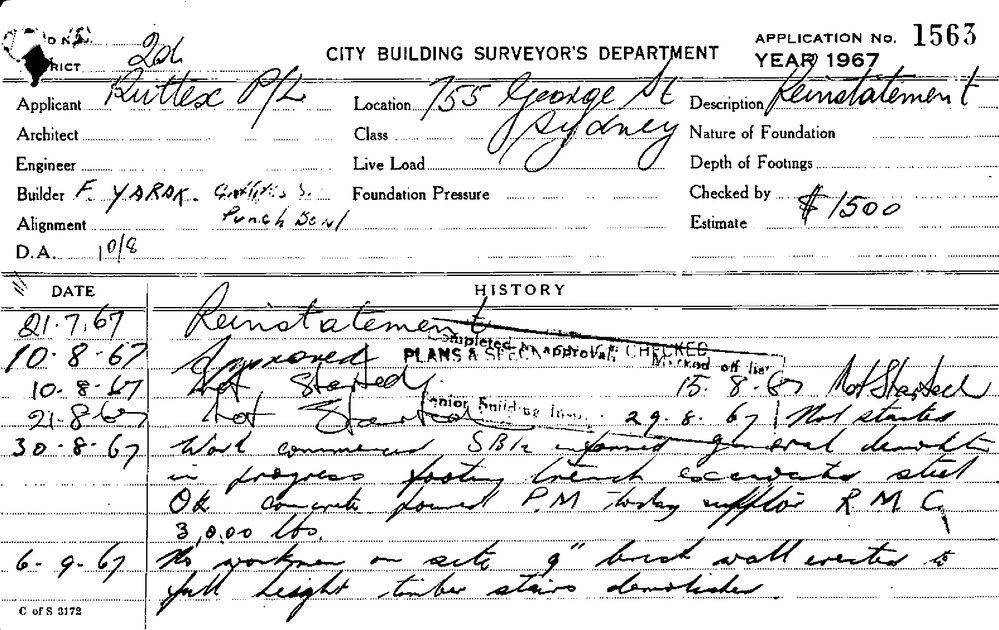 2d
RICT
CITY BUILDING SURVEYOR'S DEPARTMENT
APPLICATION No. 1563
YEAR 1967
Applicant Ruttex P/L
Location 755 George St
Sydney
Description Reinstatement
Architect
Class
Nature of Foundation
Engineer
Live Load
Depth of Footings
Builder F. YARAK.
Punch Bowl
Foundation Pressure
Checked by
Alignment
Estimate $1500
D.A. 10/8
DATE HISTORY
21.7.67 Reinstatement
10-8-67 Approved
Completed as approval
PLANS & SPECN CHECKED
Marked off list
10-8-67 Not Started. 15.8.67 Not Started
Senior Building
21-8-67 Not Started 29.8.67 Not started
30-8-67 Work commenced informed general
in progress footing trench excavated steel
OK concrete poured P.M today R M C
3,000 lbs.
6-9-67 No workmen on site 9" brick wall erected to
full height timber stairs demolished.
C of S 3172